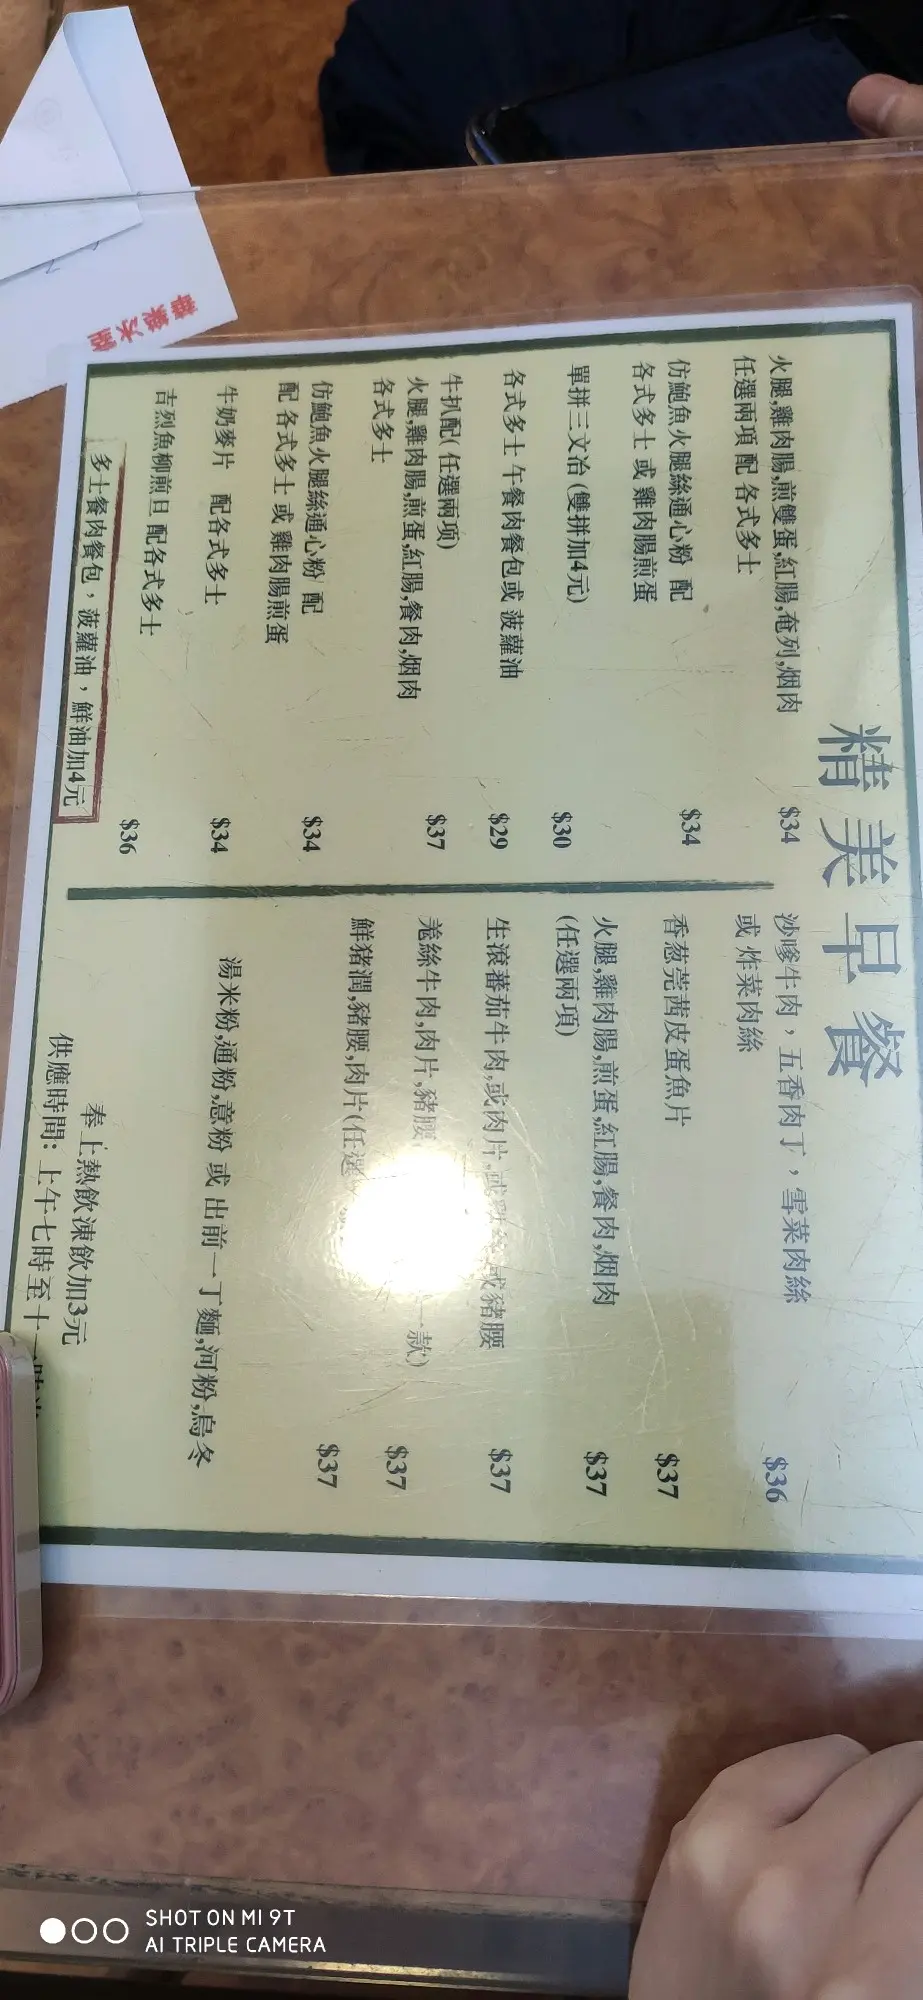 華樂冰室
精美早餐
火腿,雞肉腸,煎雙蛋,紅腸,奄列,烟肉
任選兩項 配 各式多士 $34
仿鮑魚火腿絲通心粉 配
各式多士 或 雞肉腸煎蛋 $34
單拼三文治 (雙拼加4元) $30
各式多士 午餐肉餐包或 菠蘿油 $29
牛扒配( 任選兩项)
火腿,雞肉腸,煎蛋,紅腸,餐肉,烟肉 $37
各式多士
仿鮑魚火腿絲通心粉 配 $34
配 各式多士 或 雞肉腸煎蛋
牛奶麥片 配各式多士 $34
吉烈魚柳煎旦 配各式多士 $36
多士餐肉餐包，菠蘿油，鮮油加4元
沙嗲牛肉，五香肉丁，雪菜肉絲 $36
或 炸菜肉絲
香葱芫茜皮蛋魚片 $37
火腿,雞肉腸,煎蛋,紅腸,餐肉,烟肉 $37
(任選兩項)
生滾蕃茄牛肉,或肉片,或 或豬腰 $37
羗絲牛肉,肉片,豬腰 $37
鮮猪潤,豬腰,肉片(任選 一款) $37
湯米粉,通粉,意粉 或 出前一丁麵,河粉,烏冬
奉上熱飲凍飲加3元
供應時間: 上午七時至十一
SHOT ON MI 9T
AI TRIPLE CAMERA